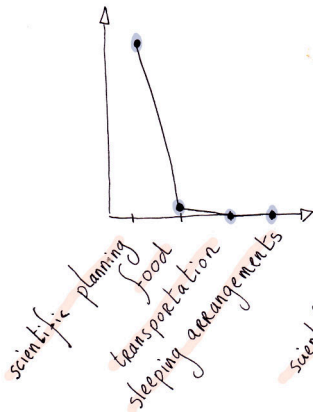 scientific planning
food
transportation
sleeping arrangements